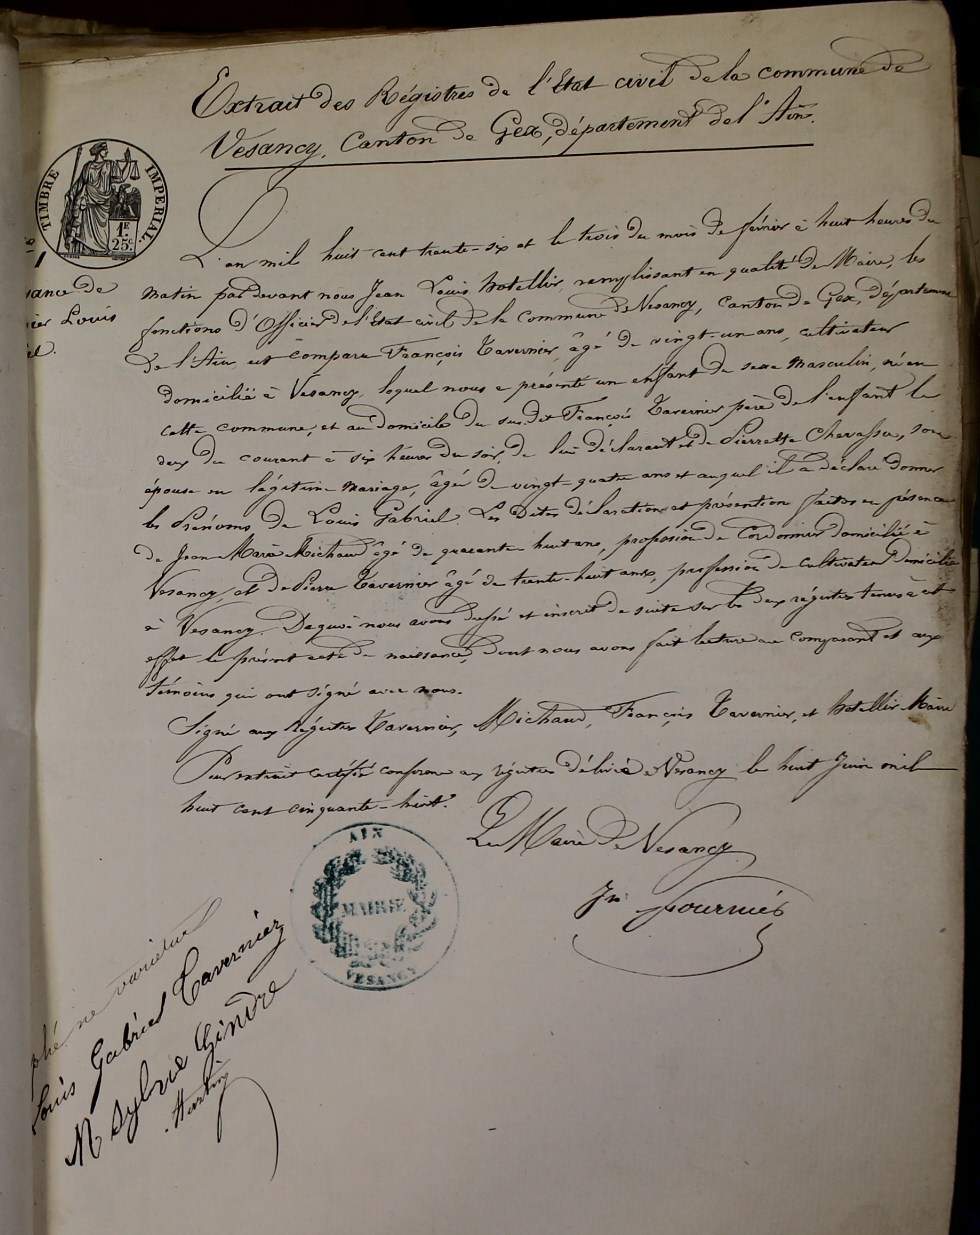 Extrait des Régistres de l'Etat civil de la commune de
Vesancy, Canton de Gex, département de l'Ain.
TIMBRE IMPERIAL.
1F 25c
L'an mil huit cent trente-six et le trois du mois de février à huit heures du
matin par devant nous Jean Louis hotellier, remplissant en qualité de Maire, les
fonctions d'Officier de l'Etat civil de la commune de Vesancy, Canton de Gex, Département
de l'Ain, est comparu François Tavernier, âgé de vingt-un ans, cultivateur
domicilié à Vesancy, lequel nous a présenté un enfant de sexe masculin, né en
cette commune, et au domicile du sus-dit François Tavernier père de l'enfant le
deux du courant à six heures du soir, de lui déclarant et de Pierrette Chavassu, son
épouse en légitime mariage, âgé de vingt-quatre ans et auquel il a déclaré donner
les Prénoms de Louis Gabriel. Les Dites déclaration et présention faites en présence
de Jean Marie Michaud âgé de quarante huit ans, profession de Cordonnier domicilié à
Vesancy, et de Pierre Tavernier âgé de trente-huit ans, profession de cultivateur domicilié
à Vesancy. De quoi nous avons dressé et inscrit de suite sur les deux régistres tenus à cet
effet le présent acte de naissance, dont nous avons fait lecture au comparant et aux
témoins qui ont signé avec nous.
Signé aux Régistres Tavernier, Michaud, François Tavernier, et hotellier Maire
Pour extrait certifié conforme aux régistres délivré à Vesancy le huit Juin mil
huit cent cinquante-huit.
Le Maire de Vesancy
Jn Fournier
AIN
MAIRIE
VESANCY
ne varietur
Louis Gabriel Tavernier
M Sylvie Gindre